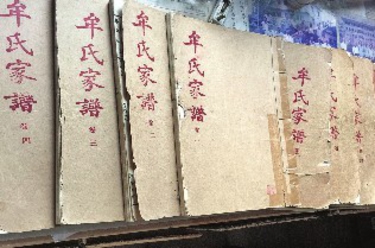 牟氏家譜
卷四
牟氏家譜
卷三
牟氏家譜
卷二
牟氏家譜
牟氏家譜
牟氏家譜
牟氏家譜